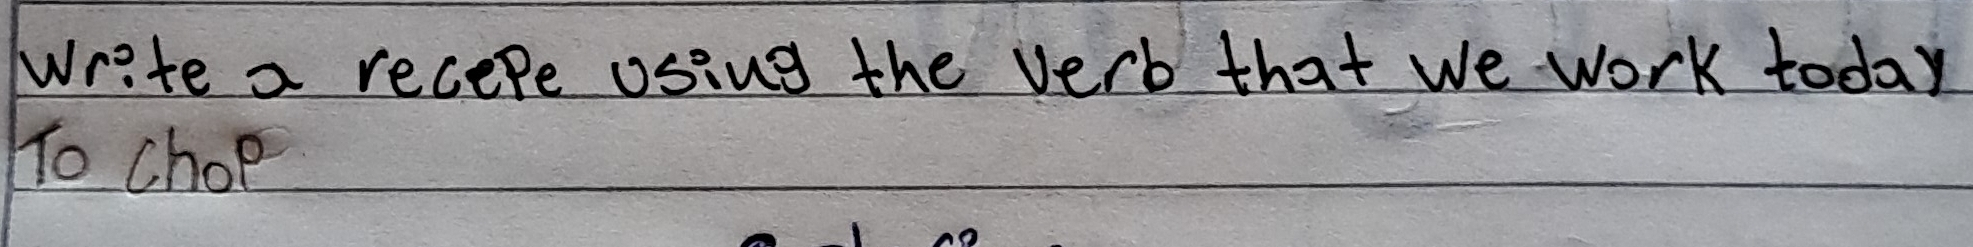 Write a recepe using the verb that we work today
To chop